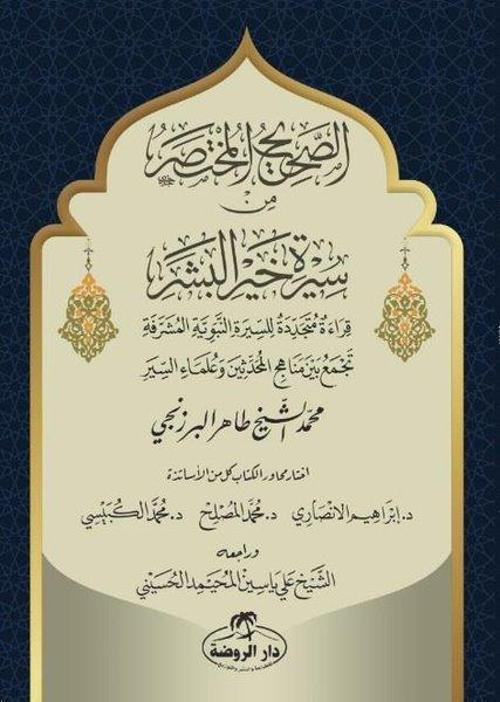 الصَّحِيحُ المُخْتَصَرُ
مِنْ
سِيرَةِ خَيْرِ البَشَرِ
قِرَاءَةٌ مُتَجَدِّدَةٌ لِلسِّيرَةِ النَّبَوِيَّةِ المُشَرَّفَةِ
تَجْمَعُ بَيْنَ مَنَاهِجِ المُحَدِّثِينَ وَعُلَمَاءِ السِّيَرِ
محمّد الشيخ طاهر البرزنجي
اختار محاور الكتاب كل من الأساتذة
د. إبْرَاهِيم الانْصَارِي د. مُحَمَّد المُصْلِح د. مُحَمَّد الكُبَيْسِي
وراجعه
الشَّيْخ عَلي يَاسِين المُحَيْمِد الحُسَيْنِي
دار الروضة